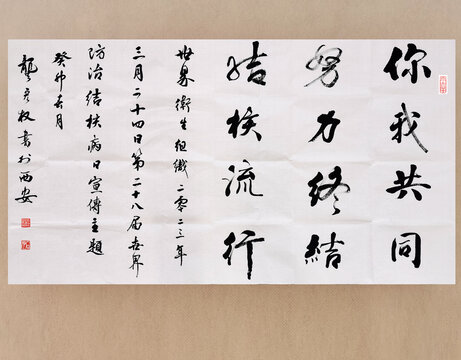 你我共同
努力终结
结核流行
世界衛生组織二零二三年
三月二十四日第二十八届世界
防治结核病日宣傳主題
癸卯年月
書於西安